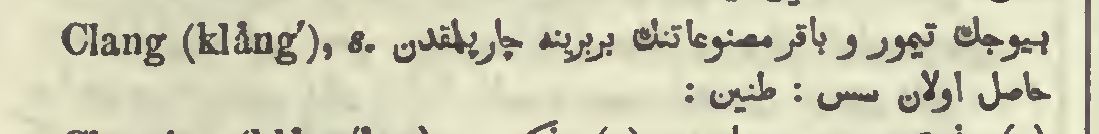 Clang (klång′), s. بيوجك تيمور و باقر مصنوعاتنك بربرينه چارپلمقدن
حاصل اولان سس : طنين :